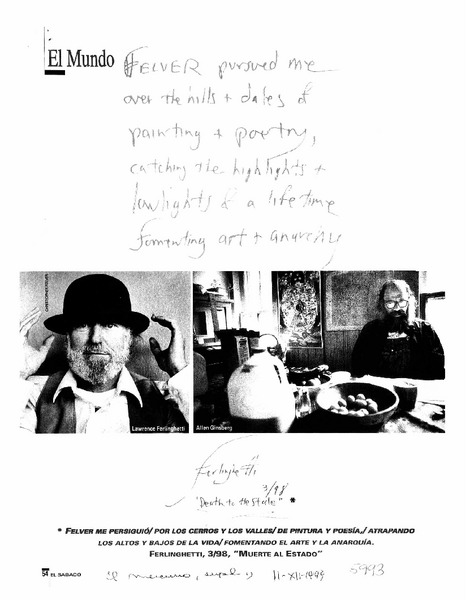 El Mundo
FELVER pursued me
over the hills + dales of
painting + poetry,
catching the highlights +
lowlights of a lifetime
fomenting art + anarchy
Lawrence Ferlinghetti
Allen Ginsberg
Ferlinghetti
3/98
"Death to the State" *
* FELVER ME PERSIGUIÓ/ POR LOS CERROS Y LOS VALLES/ DE PINTURA Y POESÍA,/ ATRAPANDO
LOS ALTOS Y BAJOS DE LA VIDA/ FOMENTANDO EL ARTE Y LA ANARQUÍA.
FERLINGHETTI, 3/98, "MUERTE AL ESTADO"
54 EL SABADO
El mercurio, 11-XII-1999 5993